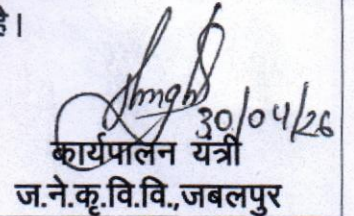 है।
30/04/26
कार्यपालन यंत्री
ज.ने.कृ.वि.वि.,जबलपुर